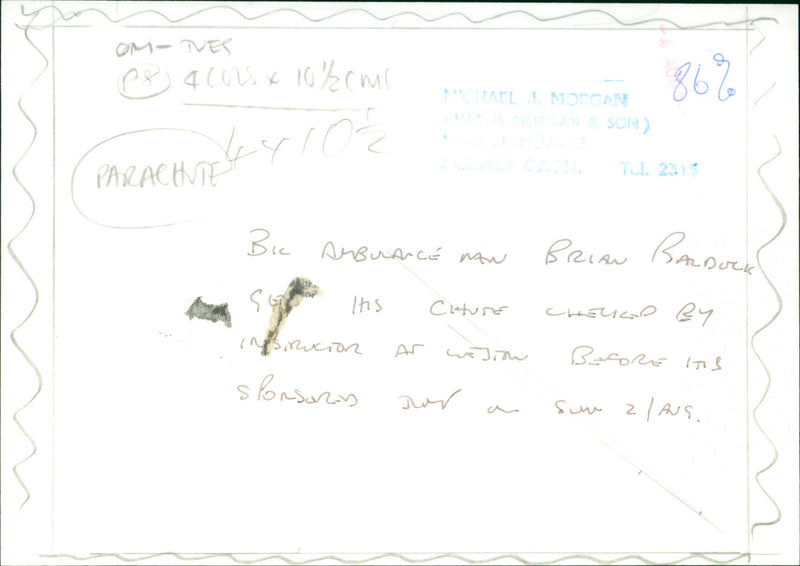 OM - TUES
P8 4 COLS x 10½ CMS
4 x 10½
PARACHUTE
86%
MICHAEL J. MORGAN
MORGAN & SON)
Tel. 2315
BIC AMBULANCE MAN BRIAN BALDOCK
HIS CHUTE CHECKED BY
INSTRUCTOR AT WESTON BEFORE HIS
SPONSORED ON SUN 2/AUG.